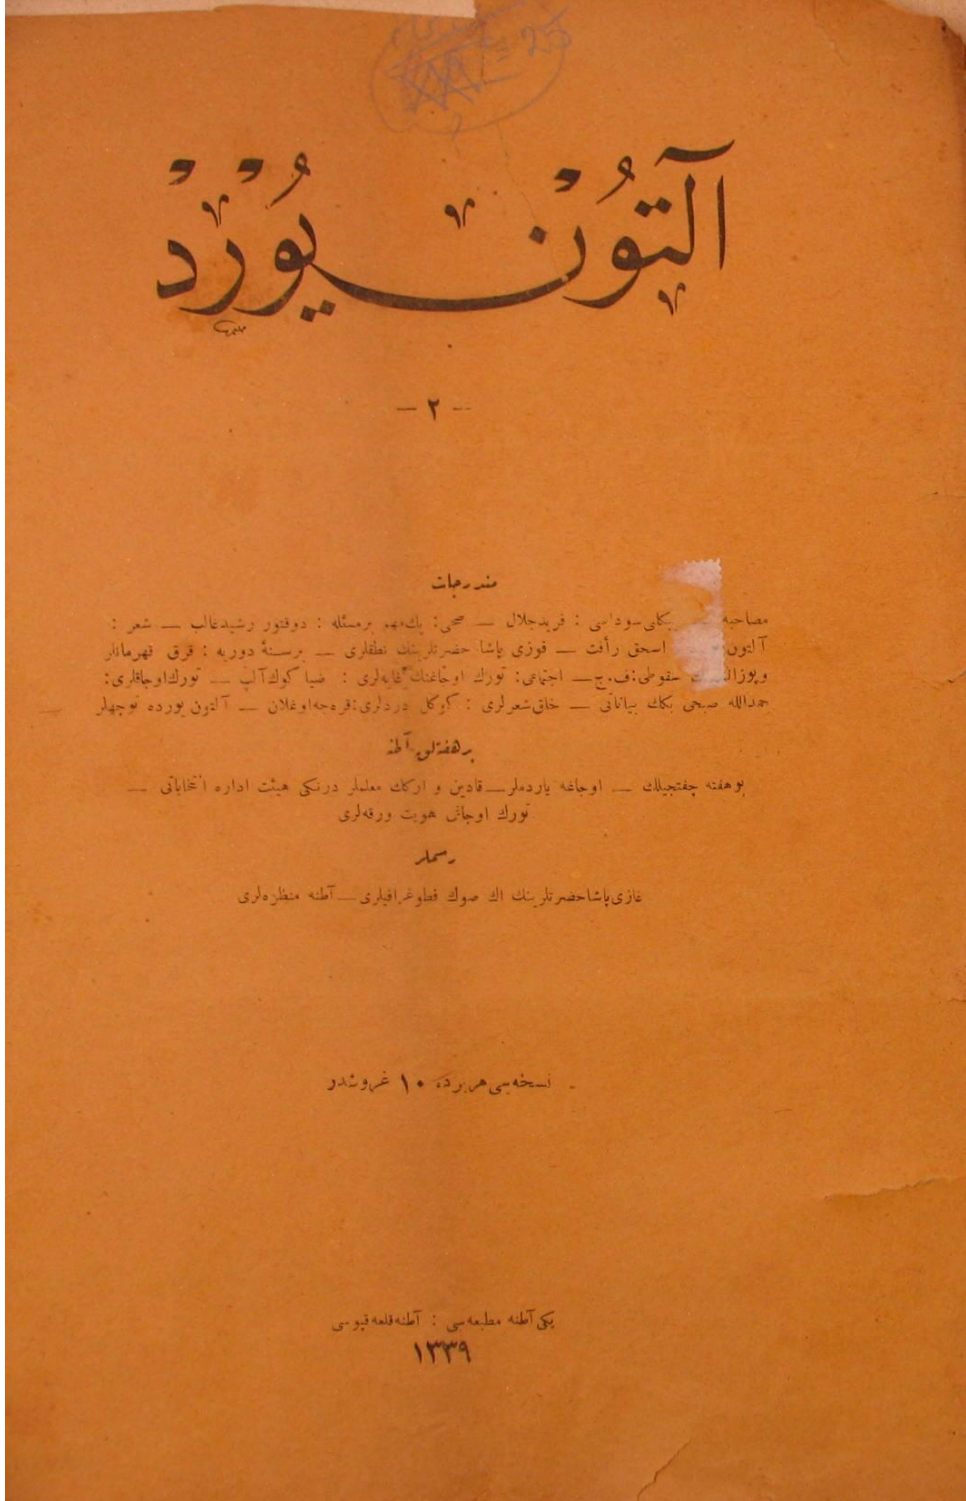 آلتون يورد
— ٢ —
مندرجات
مصاحبه يكلى سوداسى : فريد جلال — صحى : پك مهم بر مسئله : دوقتور رشيد غالب — شعر :
آلتون اسحق رأفت — فوزى پاشا حضرتلرينك نطقلرى — بر سنهٔ دوريه : قرق قهرمانلر
سقوطى : ف . ج — اجتماعى : تورك اوجاغنك غايه‌لرى : ضيا كوك آلپ — تورك اوجاقلرى :
حمدالله صبحى بكك بياناتى — خلق شعرلرى : كوكل دردلرى : قره‌جه اوغلان — آلتون يورده
بر هفته‌لق آطنه
بو هفته چفتجيلك — اوجاغه ياردملر — قادين و اركك معلملر درنكى هيئت اداره انتخاباتى —
تورك اوجاغى هويت ورقه‌لرى
رسملر
غازى پاشا حضرتلرينك اك صوك فطوغرافيلرى — آطنه منظره‌لرى
نسخه‌سى هر يرده ١٠ غروشدر
يكى آطنه مطبعه‌سى : آطنه قلعه قپوسى
١٣٣٩